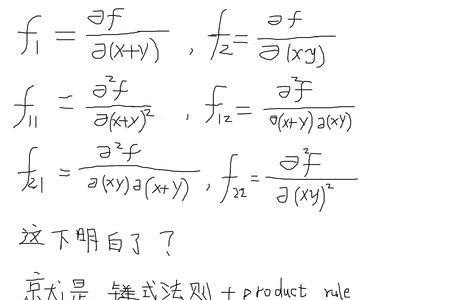 f₁ = ∂f/∂(x+y) , f₂ = ∂f/∂(xy)
f₁₁ = ∂²f/∂(x+y)² , f₁₂ = ∂²f/∂(x+y)∂(xy)
f₂₁ = ∂²f/∂(xy)∂(x+y) , f₂₂ = ∂²f/∂(xy)²
这下明白了?
就是 链式法则 + product rule